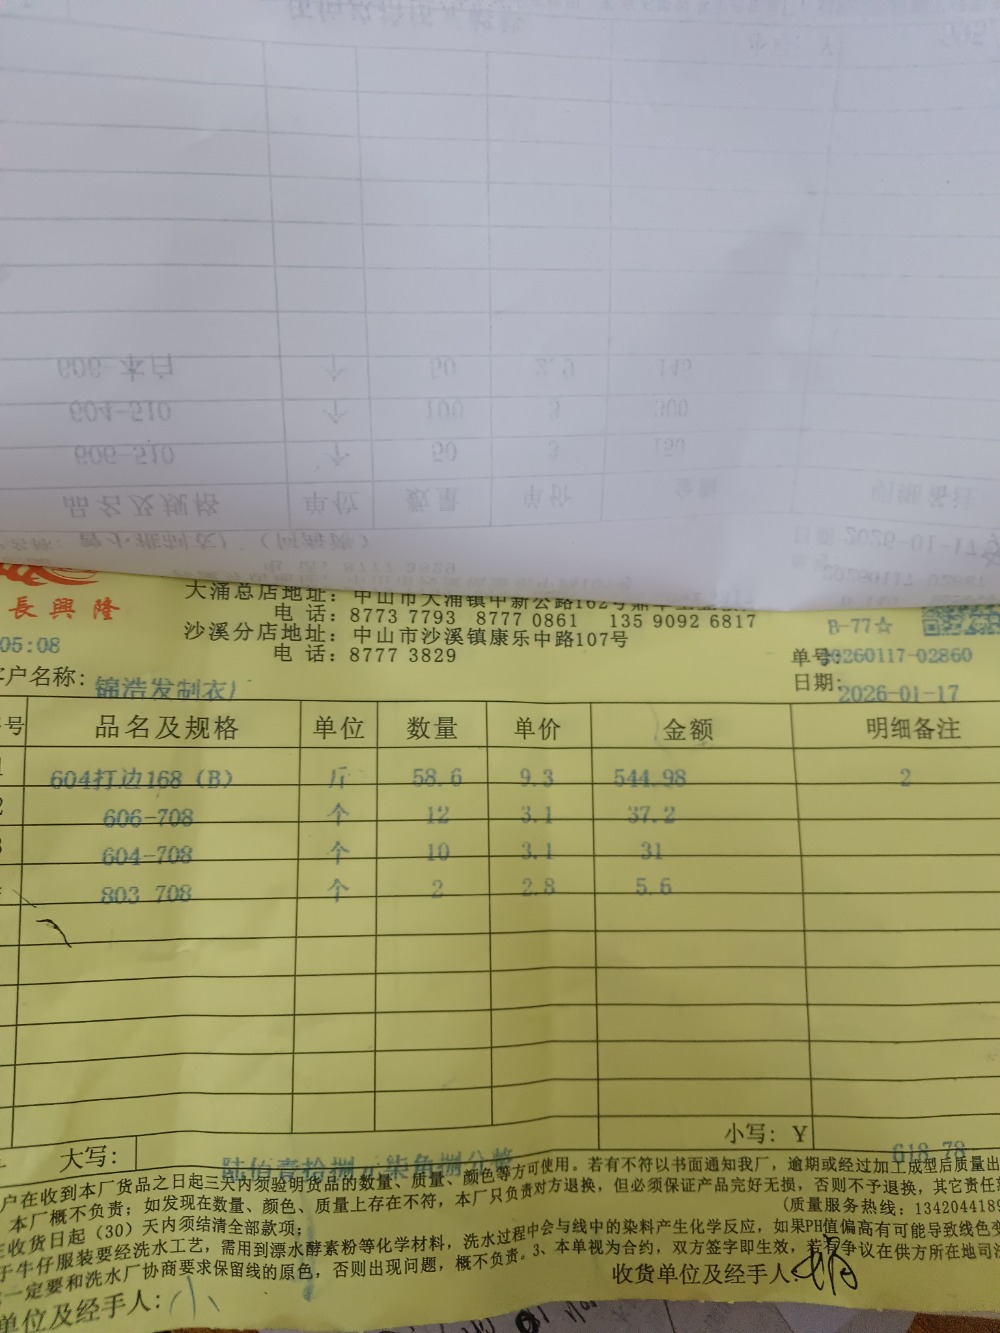 606-本白 个 50 2.9 145
604-510 个 100 3 300
606-510 个 50 3 150
品名及规格 单位 数量 单价 金额 明细备注
日期 2026-01-17
長興隆
大涌总店地址：中山市大涌镇中新公路162号
电话：8773 7793 8777 0861 135 9092 6817
沙溪分店地址：中山市沙溪镇康乐中路107号
电话：8777 3829
B-77☆
05:08
单号：20260117-02860
客户名称：锦浩发制衣厂
日期：2026-01-17
号 品名及规格 单位 数量 单价 金额 明细备注
1 604打边168（B） 斤 58.6 9.3 544.98 2
2 606-708 个 12 3.1 37.2
3 604-708 个 10 3.1 31
803 708 个 2 2.8 5.6
小写：￥ 618.78
大写：陆佰壹拾捌元柒角捌分整
户在收到本厂货品之日起三天内须验明货品的数量、质量、颜色等方可使用。若有不符以书面通知我厂，逾期或经过加工成型后质量出
本厂概不负责；如发现在数量、颜色、质量上存在不符，本厂只负责对方退换，但必须保证产品完好无损，否则不予退换，其它责任
收货日起（30）天内须结清全部款项；
（质量服务热线：1342044189
于牛仔服装要经洗水工艺，需用到漂水酵素粉等化学材料，洗水过程中会与线中的染料产生化学反应，如果PH值偏高有可能导致线色变
一定要和洗水厂协商要求保留线的原色，否则出现问题，概不负责。3、本单视为合约，双方签字即生效，若有争议在供方所在地司法
单位及经手人：小
收货单位及经手人：